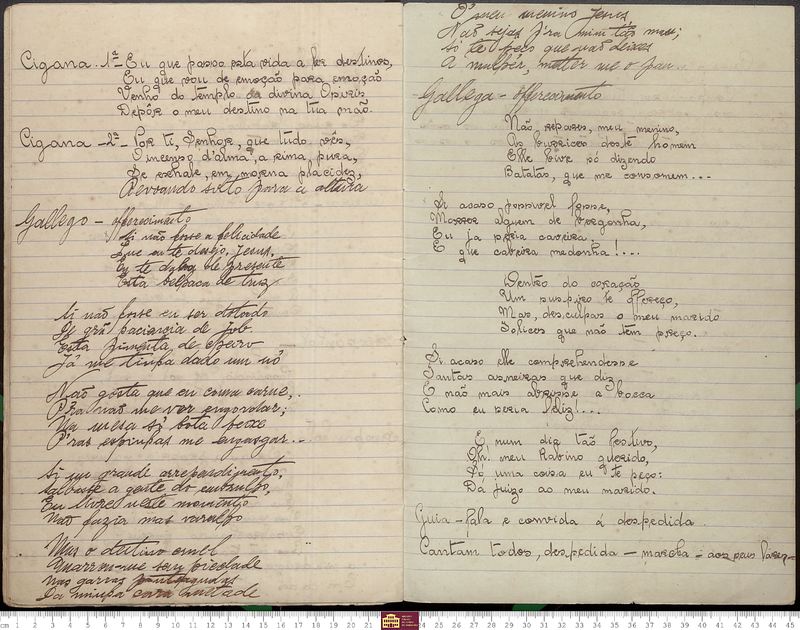 Cigana 1ª - Eu que passo pela vida a ler destinos,
Eu que vou de emoção para emoção
Venho do templo da divina Osiris
Depôr o meu destino na tua mão.
Cigana - 2ª - Por ti, Senhor, que tudo vês,
O incenso d'alma, a rima, pura,
Se exhale, em morena placidez,
Revoando solto para a altura
Gallego - offerecimento
Si não fosse a felicidade
Que eu te desejo, Jesus,
Eu te dava de presente
Esta de truz
Si não fosse eu ser dotado
De grã paciencia de Job
Esta pimenta de cheiro
Já me tinha dado um nó
Não gosta que eu coma carne,
P'ra não me ver engordar;
Na mesa si bota peixe
P'ras espinhas me engasgar...
Si um grande arrependimento,
a gente do embrulho,
Eu livre neste momento
Não fazia mas
Mas o destino cruel
sem piedade
Nas garras
Da minha cara metade
O' meu menino Jesus,
Não sejas p'ra mim tão mau;
Só te peço que não deixes
A mulher, metter-me o pau...
Gallega - offerecimento
Não repares, meu menino,
As burrices deste homem
Elle vive só dizendo
Batatas, que me consomem...
Si acaso possivel fosse,
Morrer alguem de vergonha,
Eu ja seria caveira,
E que caveira medonha!...
Dentro do coração
Um suspiro te offereço,
Mas, desculpas o meu marido
Tolices que não tem preço.
Si acaso elle comprehendesse
Tantas asneiras que diz
E não mais abrisse a bocca
Como eu seria feliz!...
E num dia tão festivo,
Oh! meu Rabino querido,
Só uma cousa eu te peço:
Dá juizo ao meu marido.
Guia - Fala e convida á despedida.
Cantam todos, despedida - marcha - aos seus